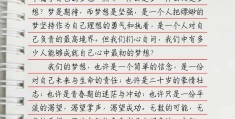 想？梦是期待，而梦想是坚强，是一个人把缥缈的
梦坚持作为自己理想的勇气和执着，是一个人对自
己负责的最高境界。但我们扪心自问，我们中有多
少人能够成就自己心中最初的梦想？
我们的梦想，也许是一个简单的信念，是一份
对自己未来与生命的责任，也许是二十岁的豪情壮
志，也许是青春期的迷茫与冲动，也许只是一份平
淡的渴望，渴望掌声，渴望成功。无数的可能，无